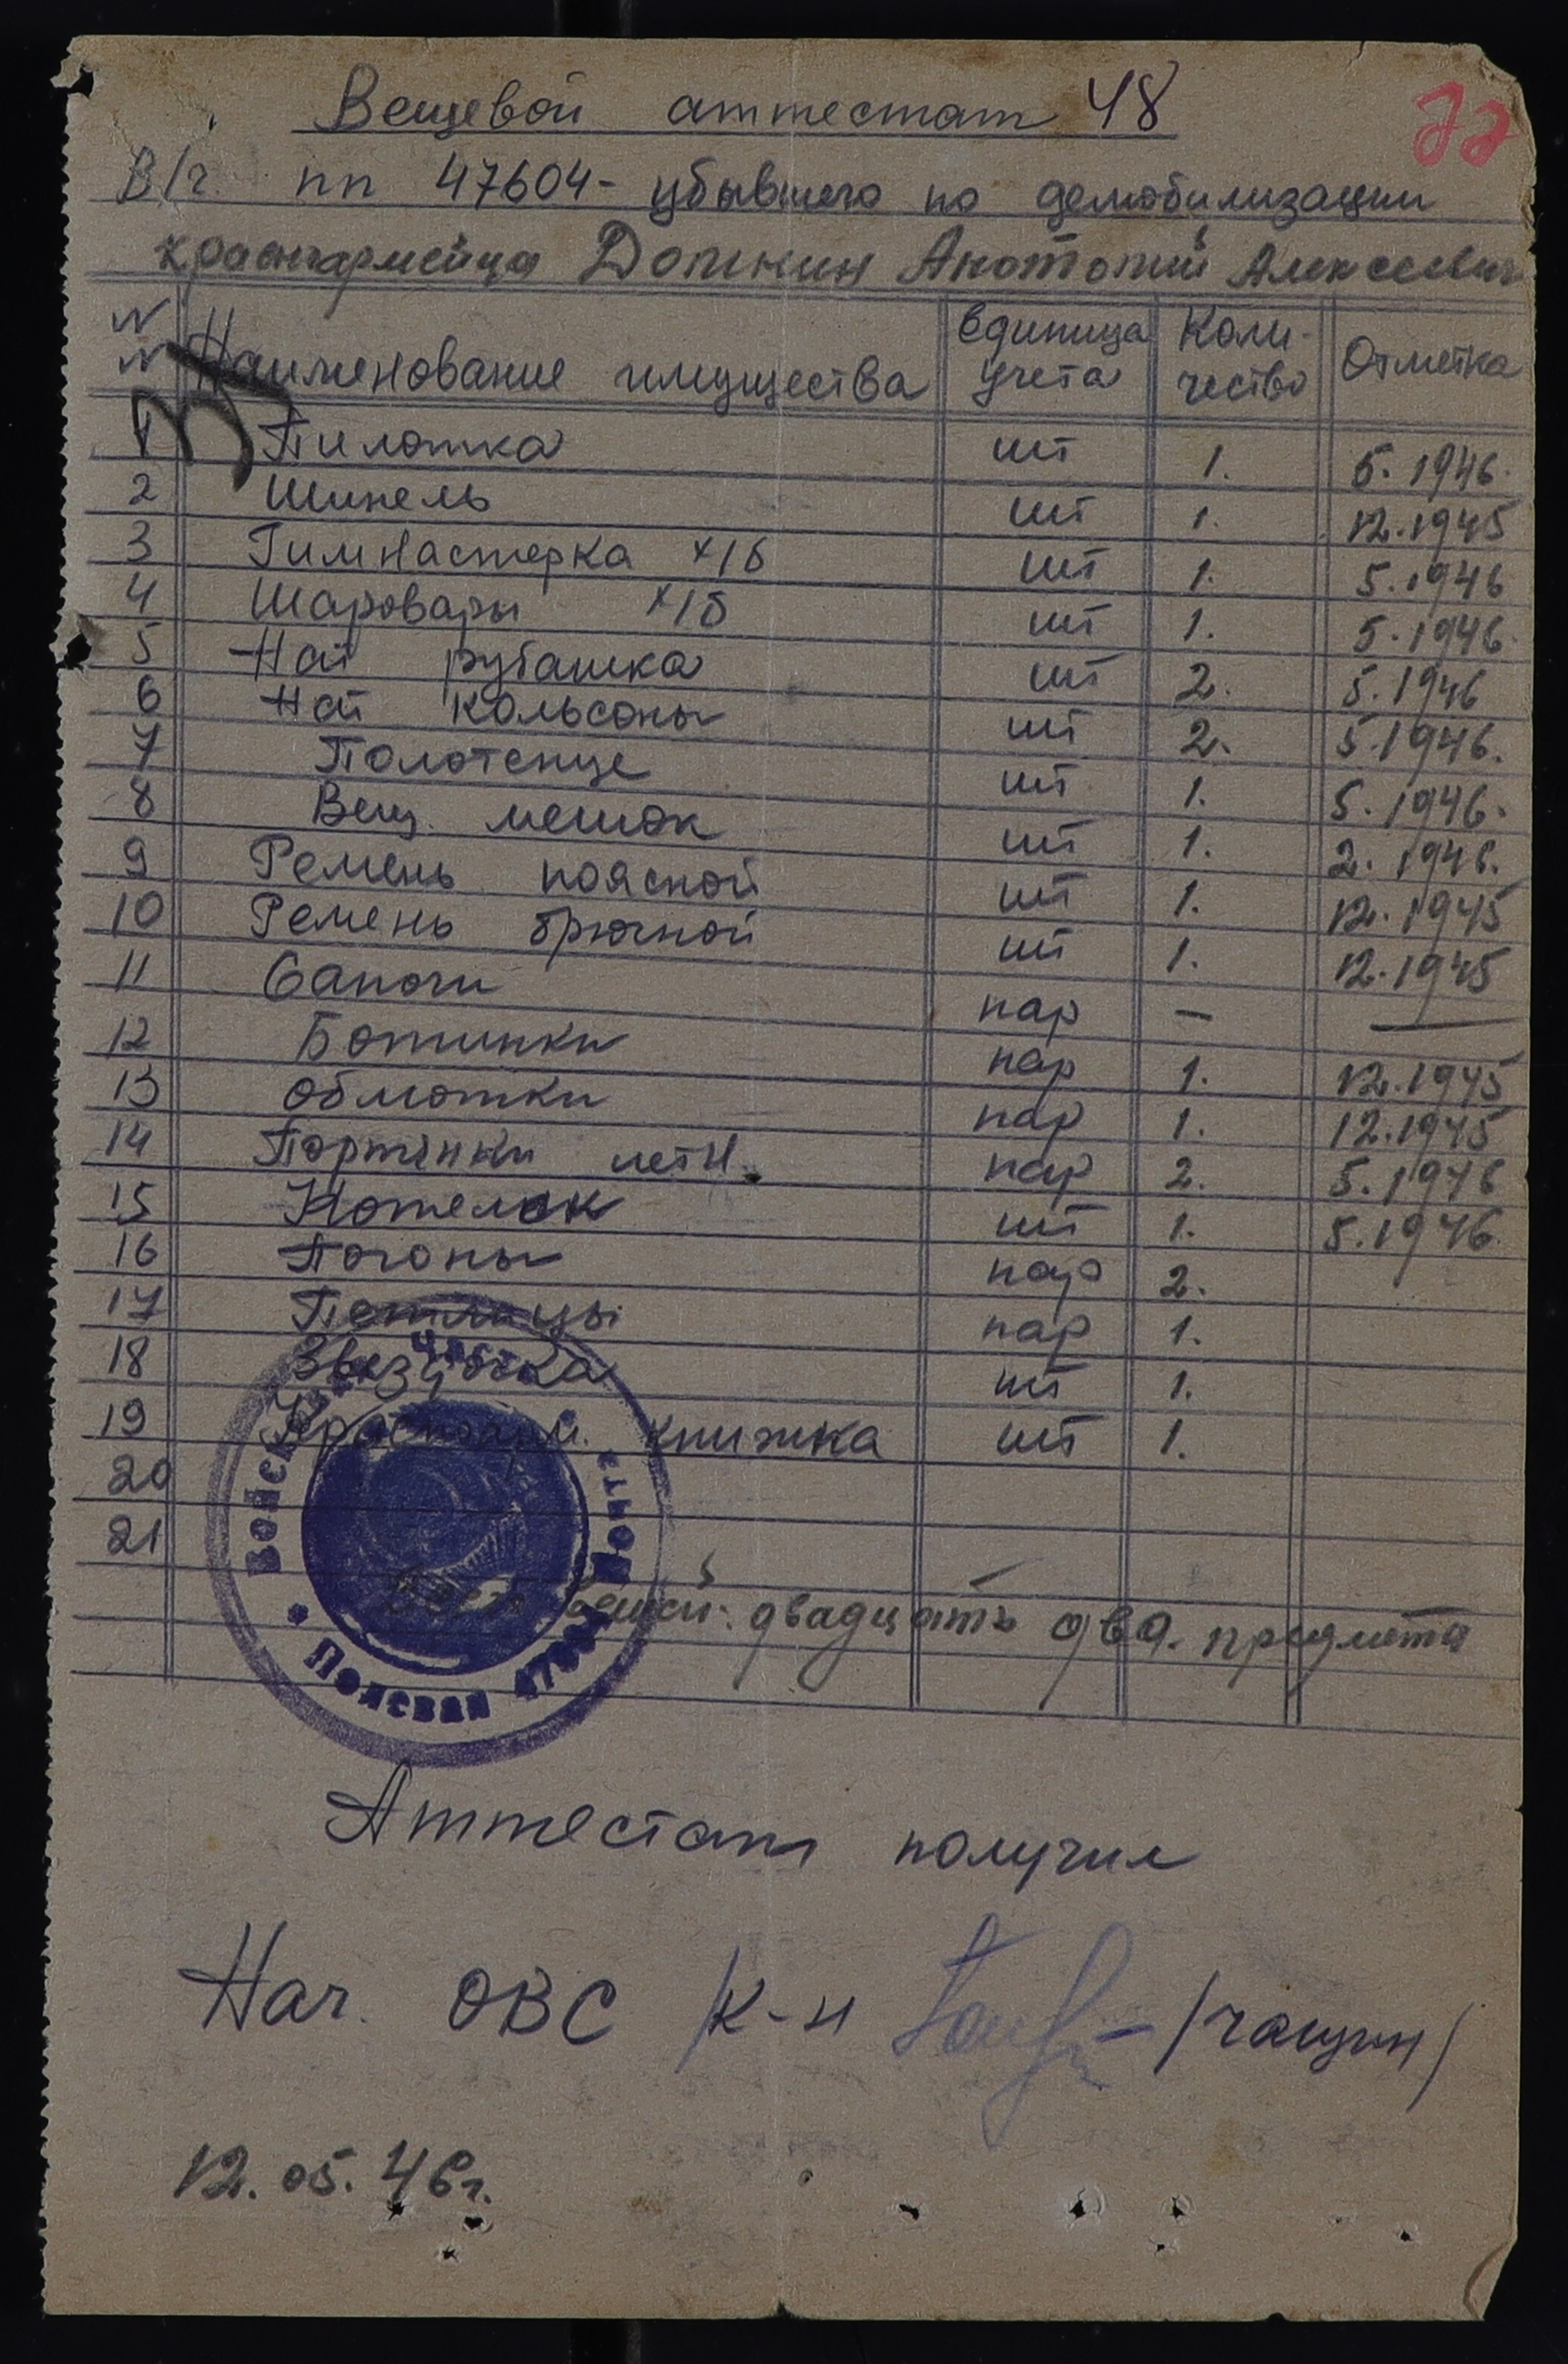 Вещевой аттестат 48
22
В/ч. пп 47604 - убывшего по демобилизации
красноармейца Долкин Анатолий Алексеевич
N N Наименование имущества Единица учета Коли-чество Отметка
1 Пилотка шт 1. 5.1946.
2 Шинель шт 1. 12.1945
3 Гимнастерка х/б шт 1. 5.1946
4 Шаровары х/б шт 1. 5.1946.
5 Нат рубашка шт 2. 5.1946
6 Нат кальсоны шт 2. 5.1946.
7 Полотенце шт 1. 5.1946.
8 Вещ. мешок шт 1. 2.1946.
9 Ремень поясной шт 1. 12.1945
10 Ремень брючной шт 1. 12.1945
11 Сапоги пар — —
12 Ботинки пар 1. 12.1945
13 Обмотки пар 1. 12.1945
14 Портянки летн. пар 2. 5.1946
15 Котелок шт 1. 5.1946.
16 Погоны пар 2.
17 Петлицы пар 1.
18 Звездочка шт 1.
19 Красноарм. книжка шт 1.
20
21
Всего вещей: двадцать два. предмета
Войсковая часть * Полевая почта 47604 *
Аттестат получил
Нач. ОВС /к-н /Чащин/
12.05.46г.